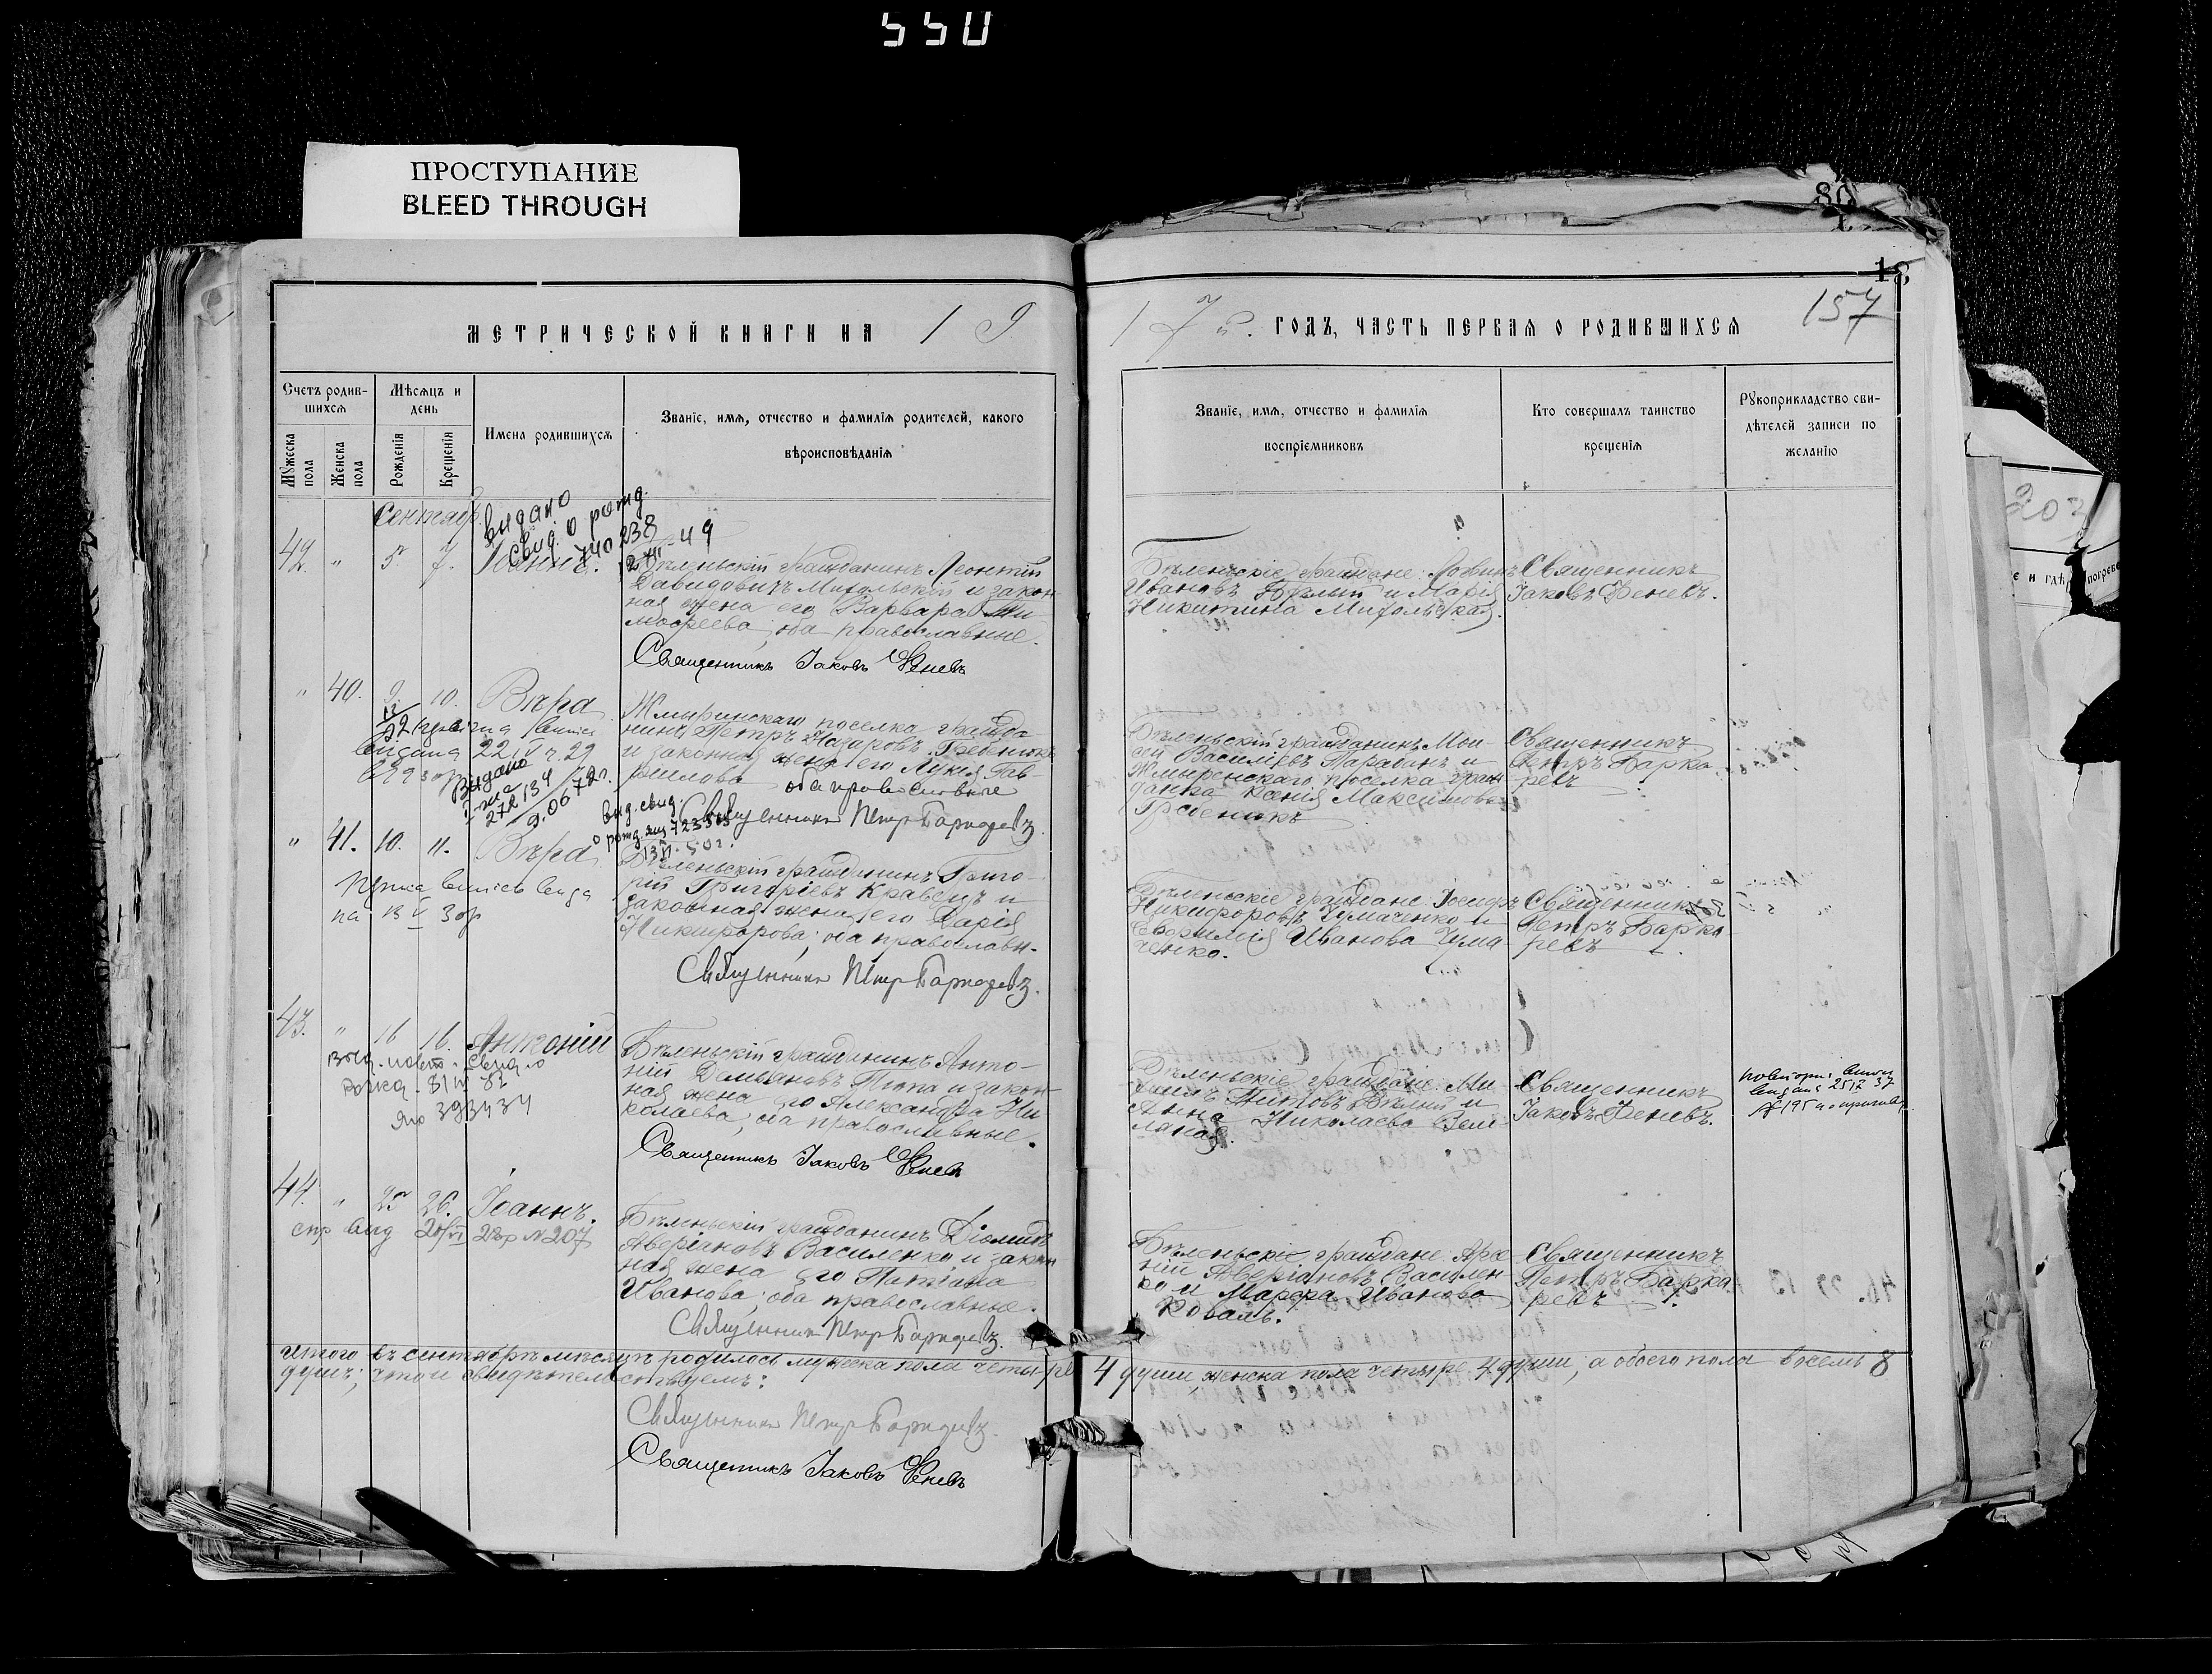 550
ПРОСТУПАНИЕ
BLEED THROUGH
80
18
157
МЕТРИЧЕСКОЙ КНИГИ НА 19
17 г. ГОДЪ, ЧАСТЬ ПЕРВАЯ О РОДИВШИХСЯ
Счетъ родив-
шихся
Мужеска
пола
Женска
пола
Мѣсяцъ и
день
Рожденія
Крещенія
Имена родившихся
Званіе, имя, отчество и фамилія родителей, какого
вѣроисповѣданія
Званіе, имя, отчество и фамилія
воспріемниковъ
Кто совершалъ таинство
крещенія
Рукоприкладство сви-
дѣтелей записи по
желанію
203
Сентябр
видано
свид. о рожд.
740238
49
42. " 5. 7. Іоаннъ.
Бѣленьскій гражданинъ Леонтій
Давидовичъ Митольскій и закон
ная жена его Варвара Ти
моѳеева; оба православные.
Священникъ Іаковъ Феневъ
Бѣленьскіе граждане: Логинъ
Ивановъ Бѣлый и Марія
Никитина Митольская.
Священникъ
Іаковъ Феневъ.
" 40. 9. 10. Вѣра
Жмыринскаго поселка гражда
нинъ Петръ Назаровъ Гребеникъ
и законная жена его Лукія Гав-
риилова оба православные
Священникъ Петръ Баркаревъ
видана 22 V 29
Видано
272134
9.06 72г.
Бѣленьскій гражданинъ Мои-
сей Василіевъ Парабинъ и
Жмыренскаго поселка граж-
данка Ксенія Максимова
Гребеникъ
Священникъ
Петръ Барка-
ревъ
вид. свид.
о рожд. 723565
" 41. 10. 11. Вѣра
Бѣленьскій гражданинъ Григо-
рій Григоріевъ Кравецъ и
законная жена его Дарія
Никифорова; оба православн.
Священникъ Петръ Баркаревъ.
Бѣленьскіе граждане: Іосифъ
Никифоровъ Чумаченко и
Евфимія Иванова Чума-
ченко.
Священникъ
Петръ Барка-
ревъ
43. " 16 16. Антоній
Рожд. 8/IV 82
ЯЮ 393434
Бѣленьскій гражданинъ Анто-
ній Демьяновъ Тюпа и закон-
ная жена его Александра Ни
колаева; оба православные.
Священникъ Іаковъ Феневъ
Бѣленьскіе граждане: Ми-
Титовъ Бѣлый и
Анна Николаева
Священникъ
Іаковъ Феневъ.
44. " 25 26. Іоаннъ.
спр вид 20/VI 28р N 207
Бѣленьскій гражданинъ Діомидъ
Аверіановъ Василенко и закон
ная жена его Татіана
Иванова; оба православные.
Священникъ Петръ Баркаревъ
Бѣленьскіе граждане: Арсе-
ній Аверіановъ Василен-
ко и Марфа Иванова
Коваль.
Священникъ
Петръ Барка
ревъ
Итого въ сентябрѣ мѣсяцѣ родилось мужеска пола четыре 4 души, женска пола четыре 4 души, а обоего пола восемь 8
душъ; что и свидѣтельствуемъ:
Священникъ Петръ Баркаревъ.
Священникъ Іаковъ Феневъ